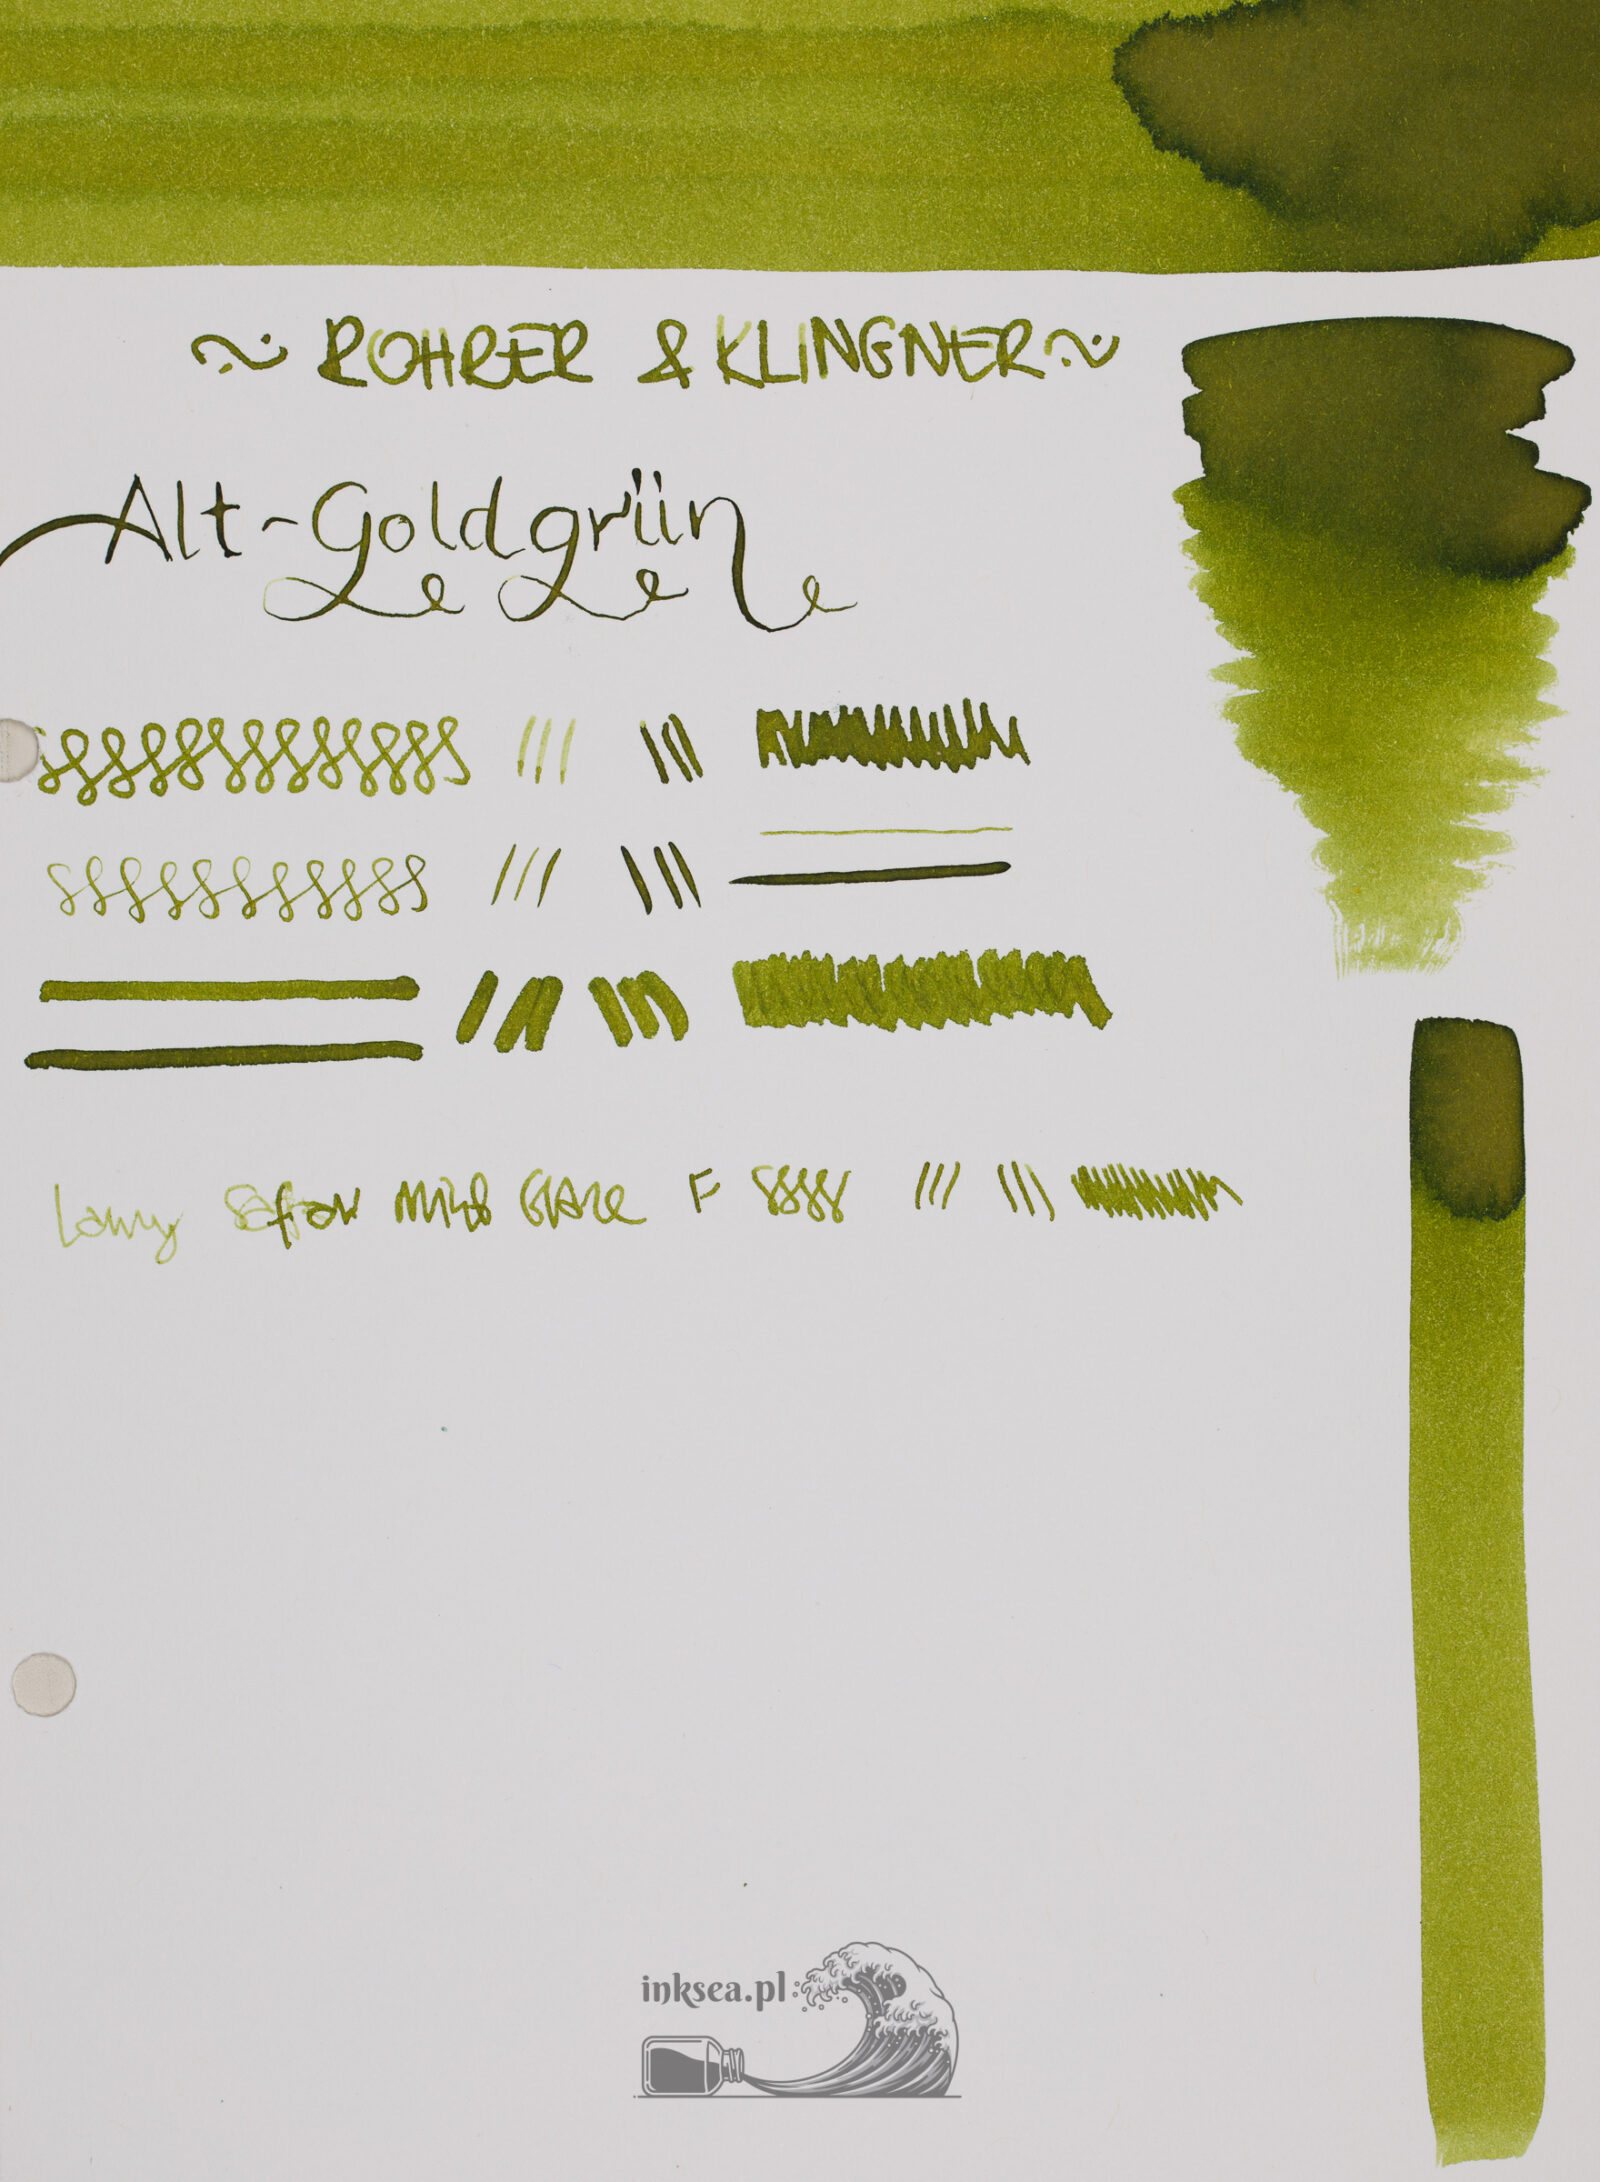 ~ ROHRER & KLINGNER ~
Alt-Goldgrün
Lamy Safari F
inksea.pl